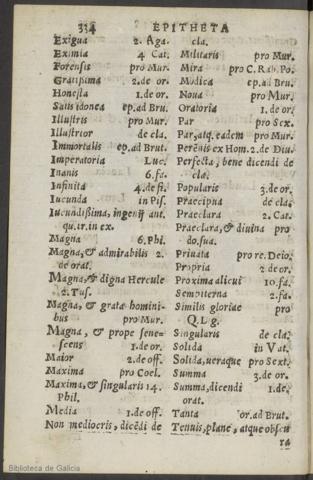 334 EPITHETA
Exigua 2. Aga.
Eximia 4 Cat.
Forensis pro Mur.
Gratissima 2.de or.
Honesta 1.de or.
Satis idonea ep.ad Bru.
Illustris pro Mur.
Illustrior de cla.
Immortalis ep.ad Brut.
Imperatoria Luc.
Inanis 6.fa.
Infinita 4.de fi.
Iucunda in Pis.
Iucundißima, ingenij ant.
qu.ir.in ex.
Magna 6. Phi.
Magna, & admirabilis 2.
de orat.
Magna, & digna Hercule
2. Tus.
Magna, & grata homini-
bus pro Mur.
Magna, & prope sene-
scens 1.de or.
Maior 2.de off.
Maxima pro Coel.
Maxima, & singularis 14.
Phil.
Media 1.de off.
Non mediocris, dicēdi de
cla.
Militaris pro Mur.
Mira pro C. Rab. Po.
Modica ep.ad Bru.
Noua pro Mur.
Oratoria 1.de or.
Par pro Sex.
Par, atq. eadem pro Mur.
Perēnis ex Hom. 2. de Diu.
Perfecta, bene dicendi de
cla.
Popularis 3.de or.
Praecipua de cla.
Praeclara 2. Cat.
Praeclara, & diuina pro
do.sua.
Priuata pro re.Deio.
Propria 2 de or.
Proxima alicui 10.fa.
Sempiterna 2.fa.
Similis gloriae pro
Q.Lg.
Singularis de cla.
Solida in Vat.
Solida, ueraque pro Sext.
Summa 3.de or.
Summa, dicendi 1.de.
orat.
Tanta or.ad Brut.
Tenuis, planè, atque obscu
ra
Biblioteca de Galicia